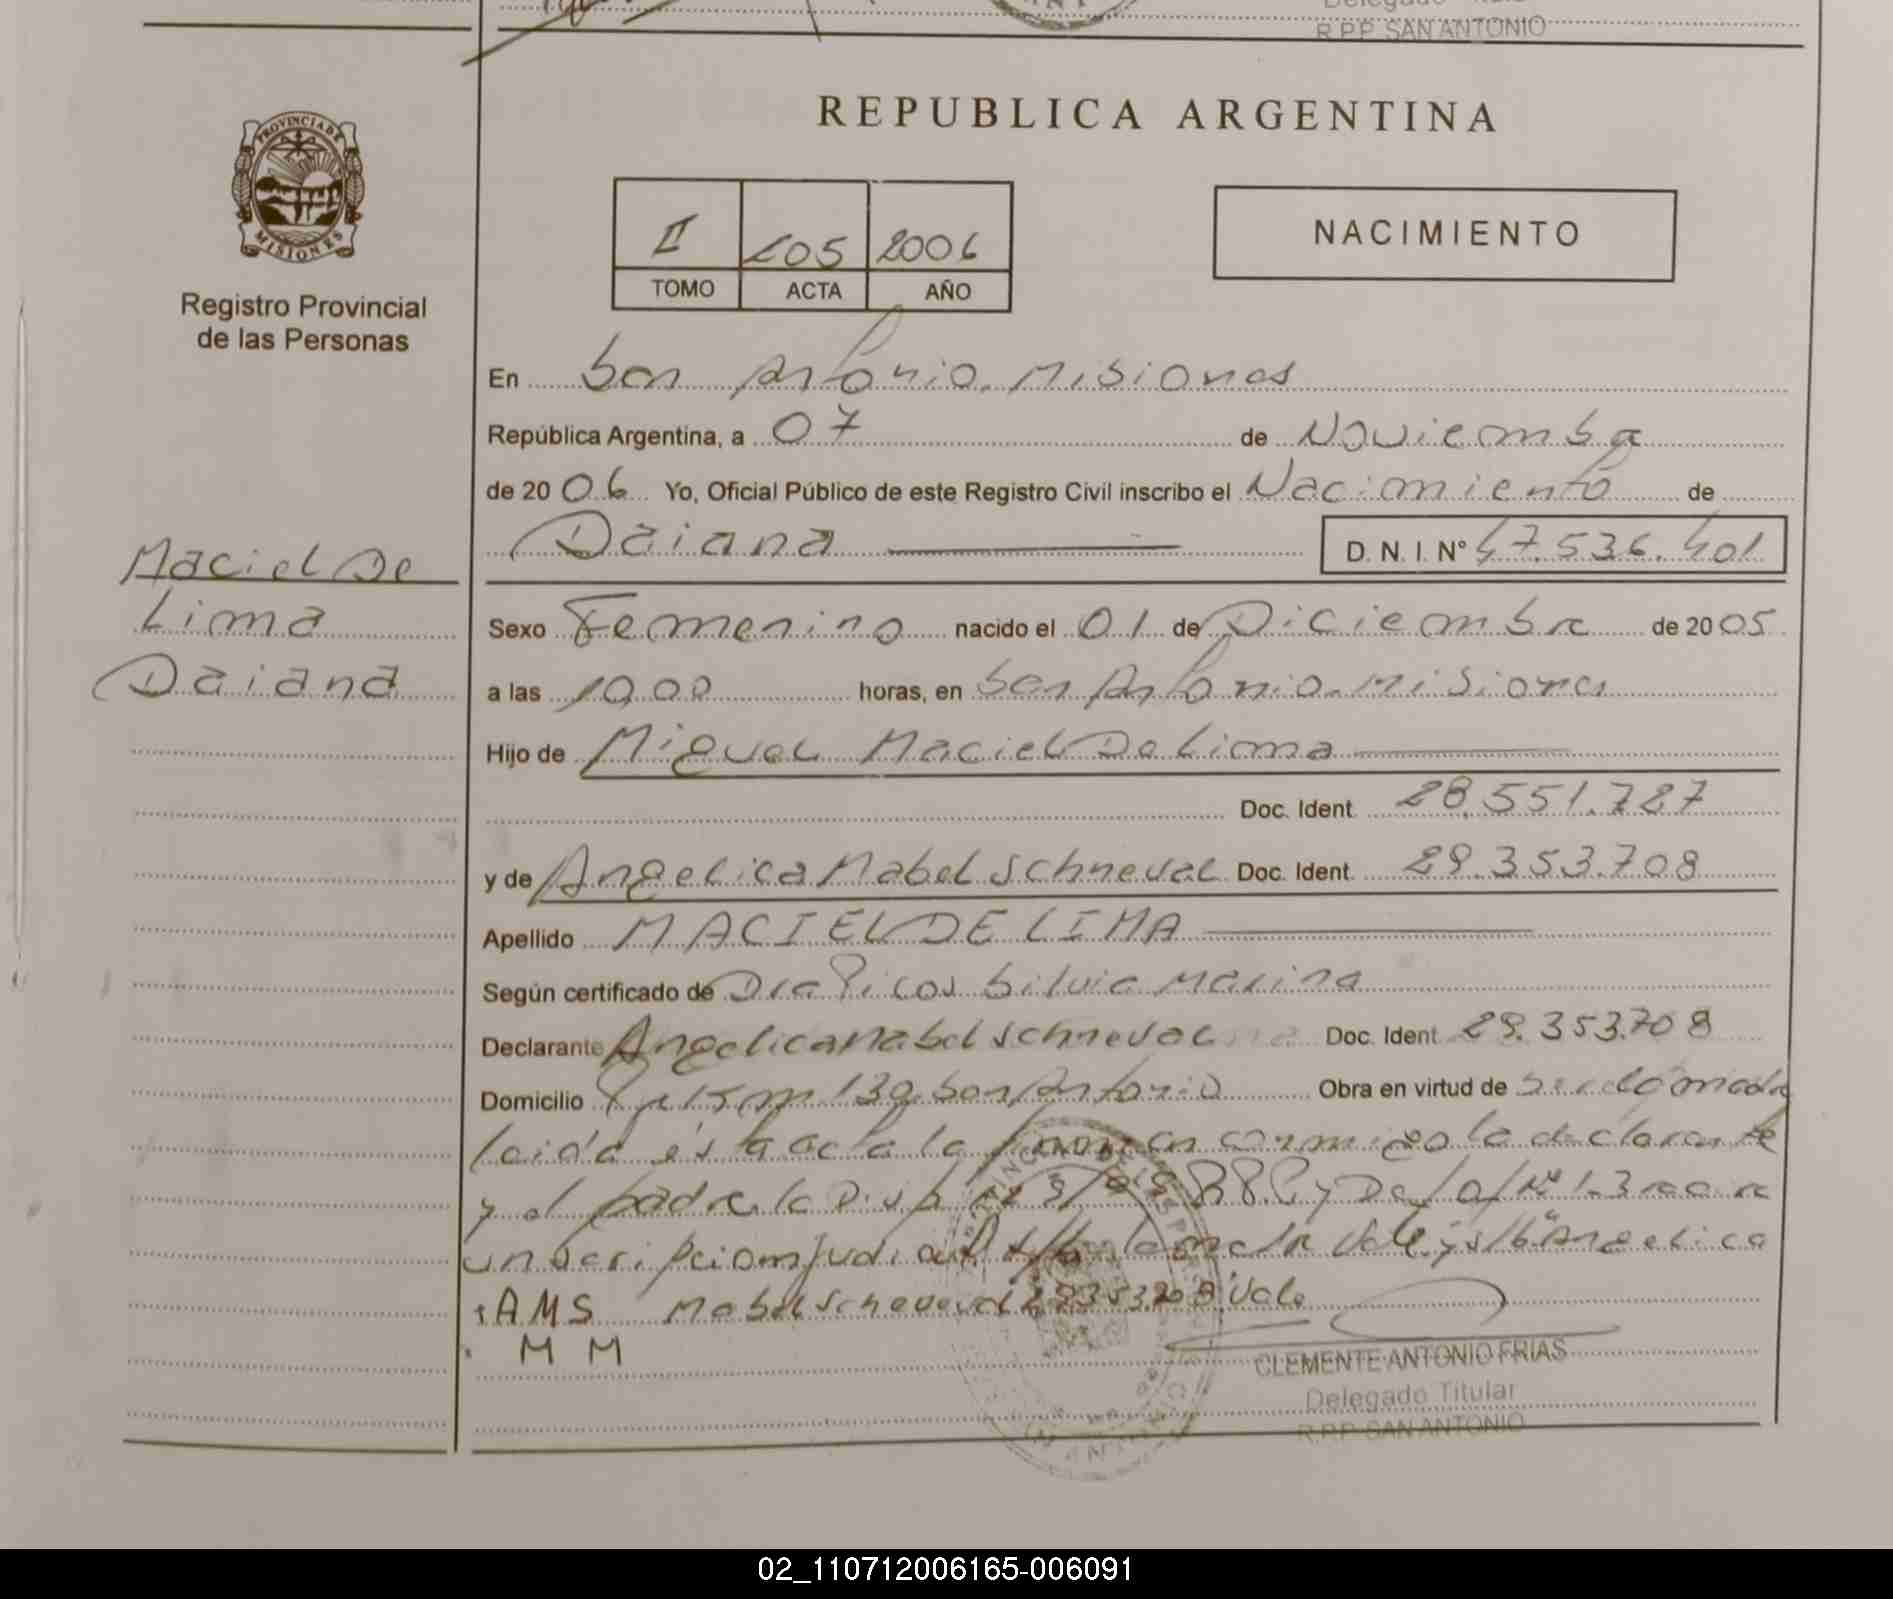 R.P.P. SAN ANTONIO
REPUBLICA ARGENTINA
PROVINCIA DE
MISIONES
Registro Provincial
de las Personas
II 105 2006
TOMO ACTA AÑO
NACIMIENTO
En San Antonio. Misiones
República Argentina, a 07 de Noviembre
de 2006 Yo, Oficial Público de este Registro Civil inscribo el Nacimiento de
Daiana
D. N. I. Nº 47.536.401
Maciel De
Lima
Daiana
Sexo Femenino nacido el 01 de Diciembre de 2005
a las 10,00 horas, en San Antonio. Misiones
Hijo de Miguel Maciel De Lima
Doc. Ident. 28.551.727
y de Angelica Mabel Schneval Doc. Ident. 29.353.708
Apellido MACIEL DE LIMA
Según certificado de Dra Picos Silvia Marina
Declarante Angelica Mabel Schneval Doc. Ident 29.353.708
Domicilio San Antonio Obra en virtud de madre
leida esta acta la firman conmigo la declarante
y el padre la
Angelica
AMS Mabel 29353708 Vale
M M
CLEMENTE ANTONIO FRIAS
Delegado Titular
R.P.P. SAN ANTONIO
02_110712006165-006091